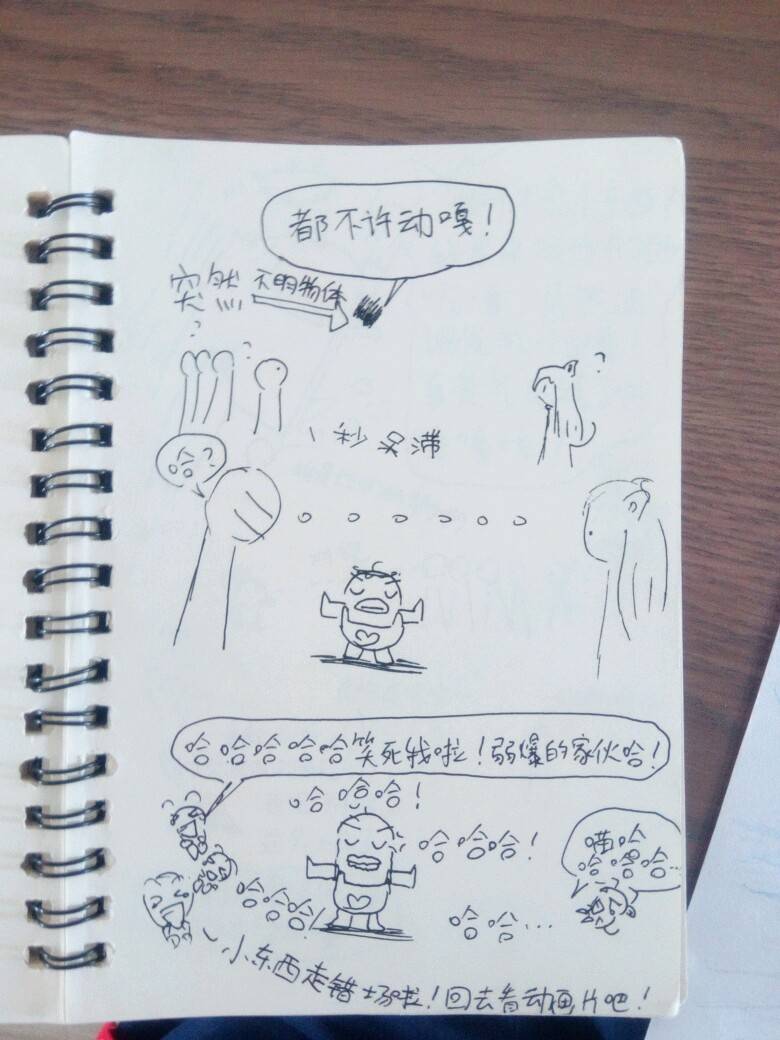 都不许动嘎！
突然 不明物体
? ? ?
1秒呆滞
哈?
哈哈哈哈哈笑死我啦！弱爆的家伙哈！
哈哈哈！
哈哈哈！
喵哈
哈哈哈…
哈哈哈！
哈哈…
小东西走错场啦！回去看动画片吧！